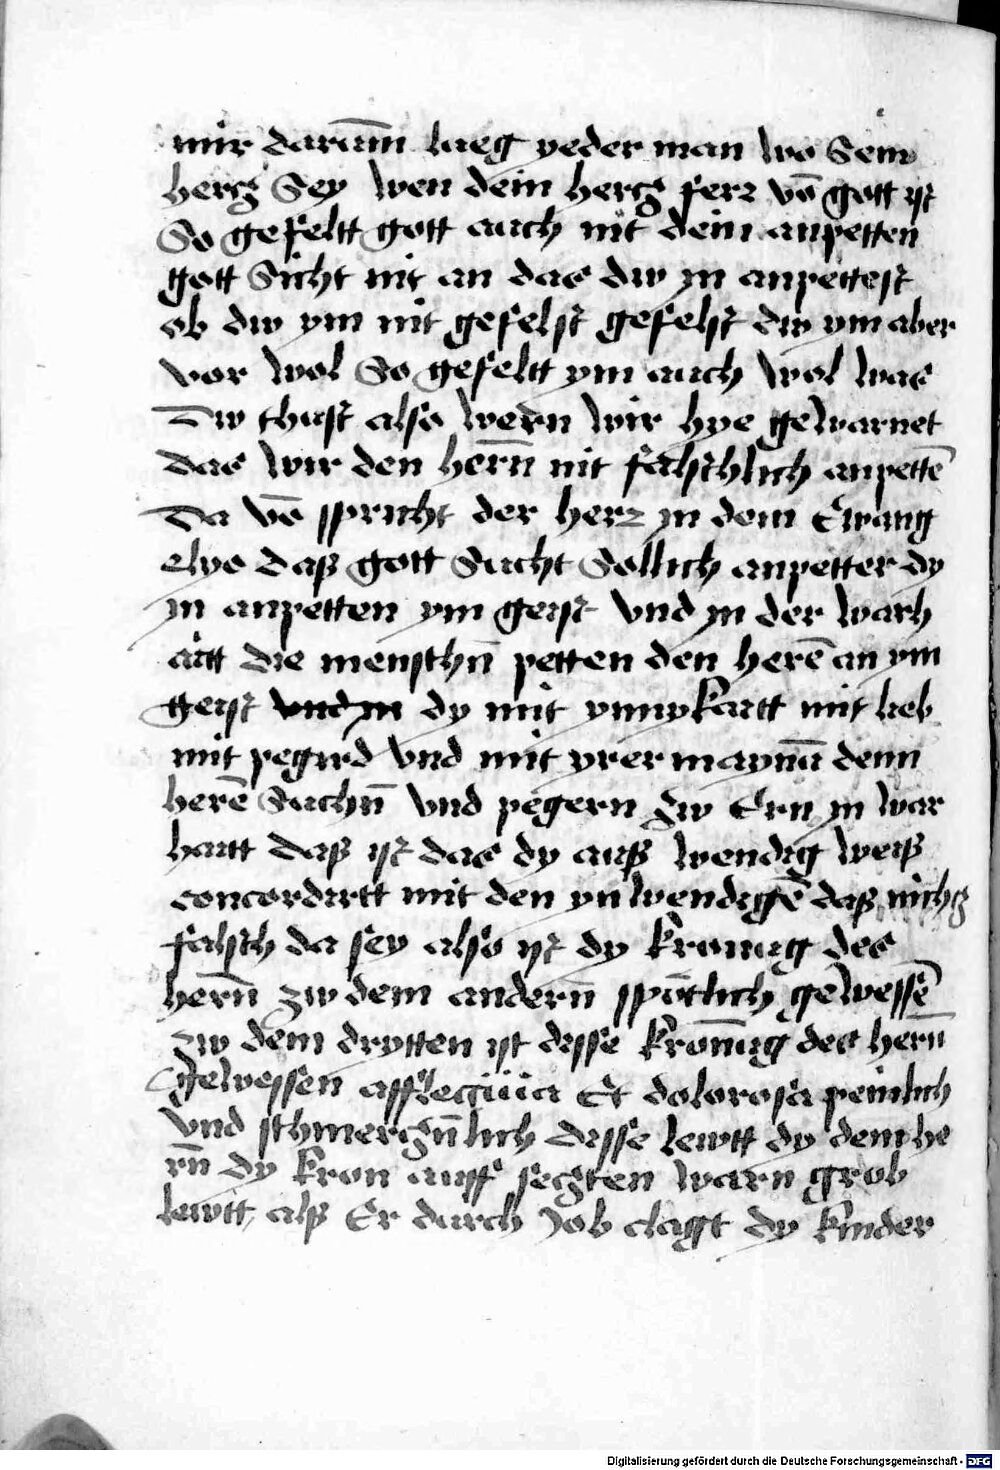 mir darum̄ lueg yeder man wo Sein
hercz Sey Wen dein hercz ferr vō gott ist
So gefeltt gott auch nit dein anpetten
gott Sicht nit an das dw in anpettest
ob dw ym nit gefelst gefelst dw ym aber
vor wol So gefeltt ym auch wol was
Dw thust also wern wir hye gewarnet
das wir den herñ nit falschlich anpettē
Da vō spricht der herr in dem Ewang
elyo daß gott Sucht Sollich anpetter dy
in anpetten ym geist vnd in der warh
aitt die menschñ petten den herē an ym
geist dy mit ynnykaitt mit lieb
mit pegird vnd mit yrer maynūg denn
herē Suchñ vnd pegern zw Ern in war
haitt daß ist das dy auß wendig weiß
concordirtt mit den ynwendigē daß nichcz
falsch da sey also ist dy kronung des
herñ zw dem andern̄ spōtlich gewessē
zw dem drytten ist disse kron̄ung des herñ
gewessen afflictiua Et dolorosa peinlich
vnd schmerczn̄lich disse lewtt dy dem he
rñ dy kron auff seczten warn grob
lewtt, alß Er durch Job clagt dy kinder
Digitalisierung gefördert durch die Deutsche Forschungsgemeinschaft - DFG